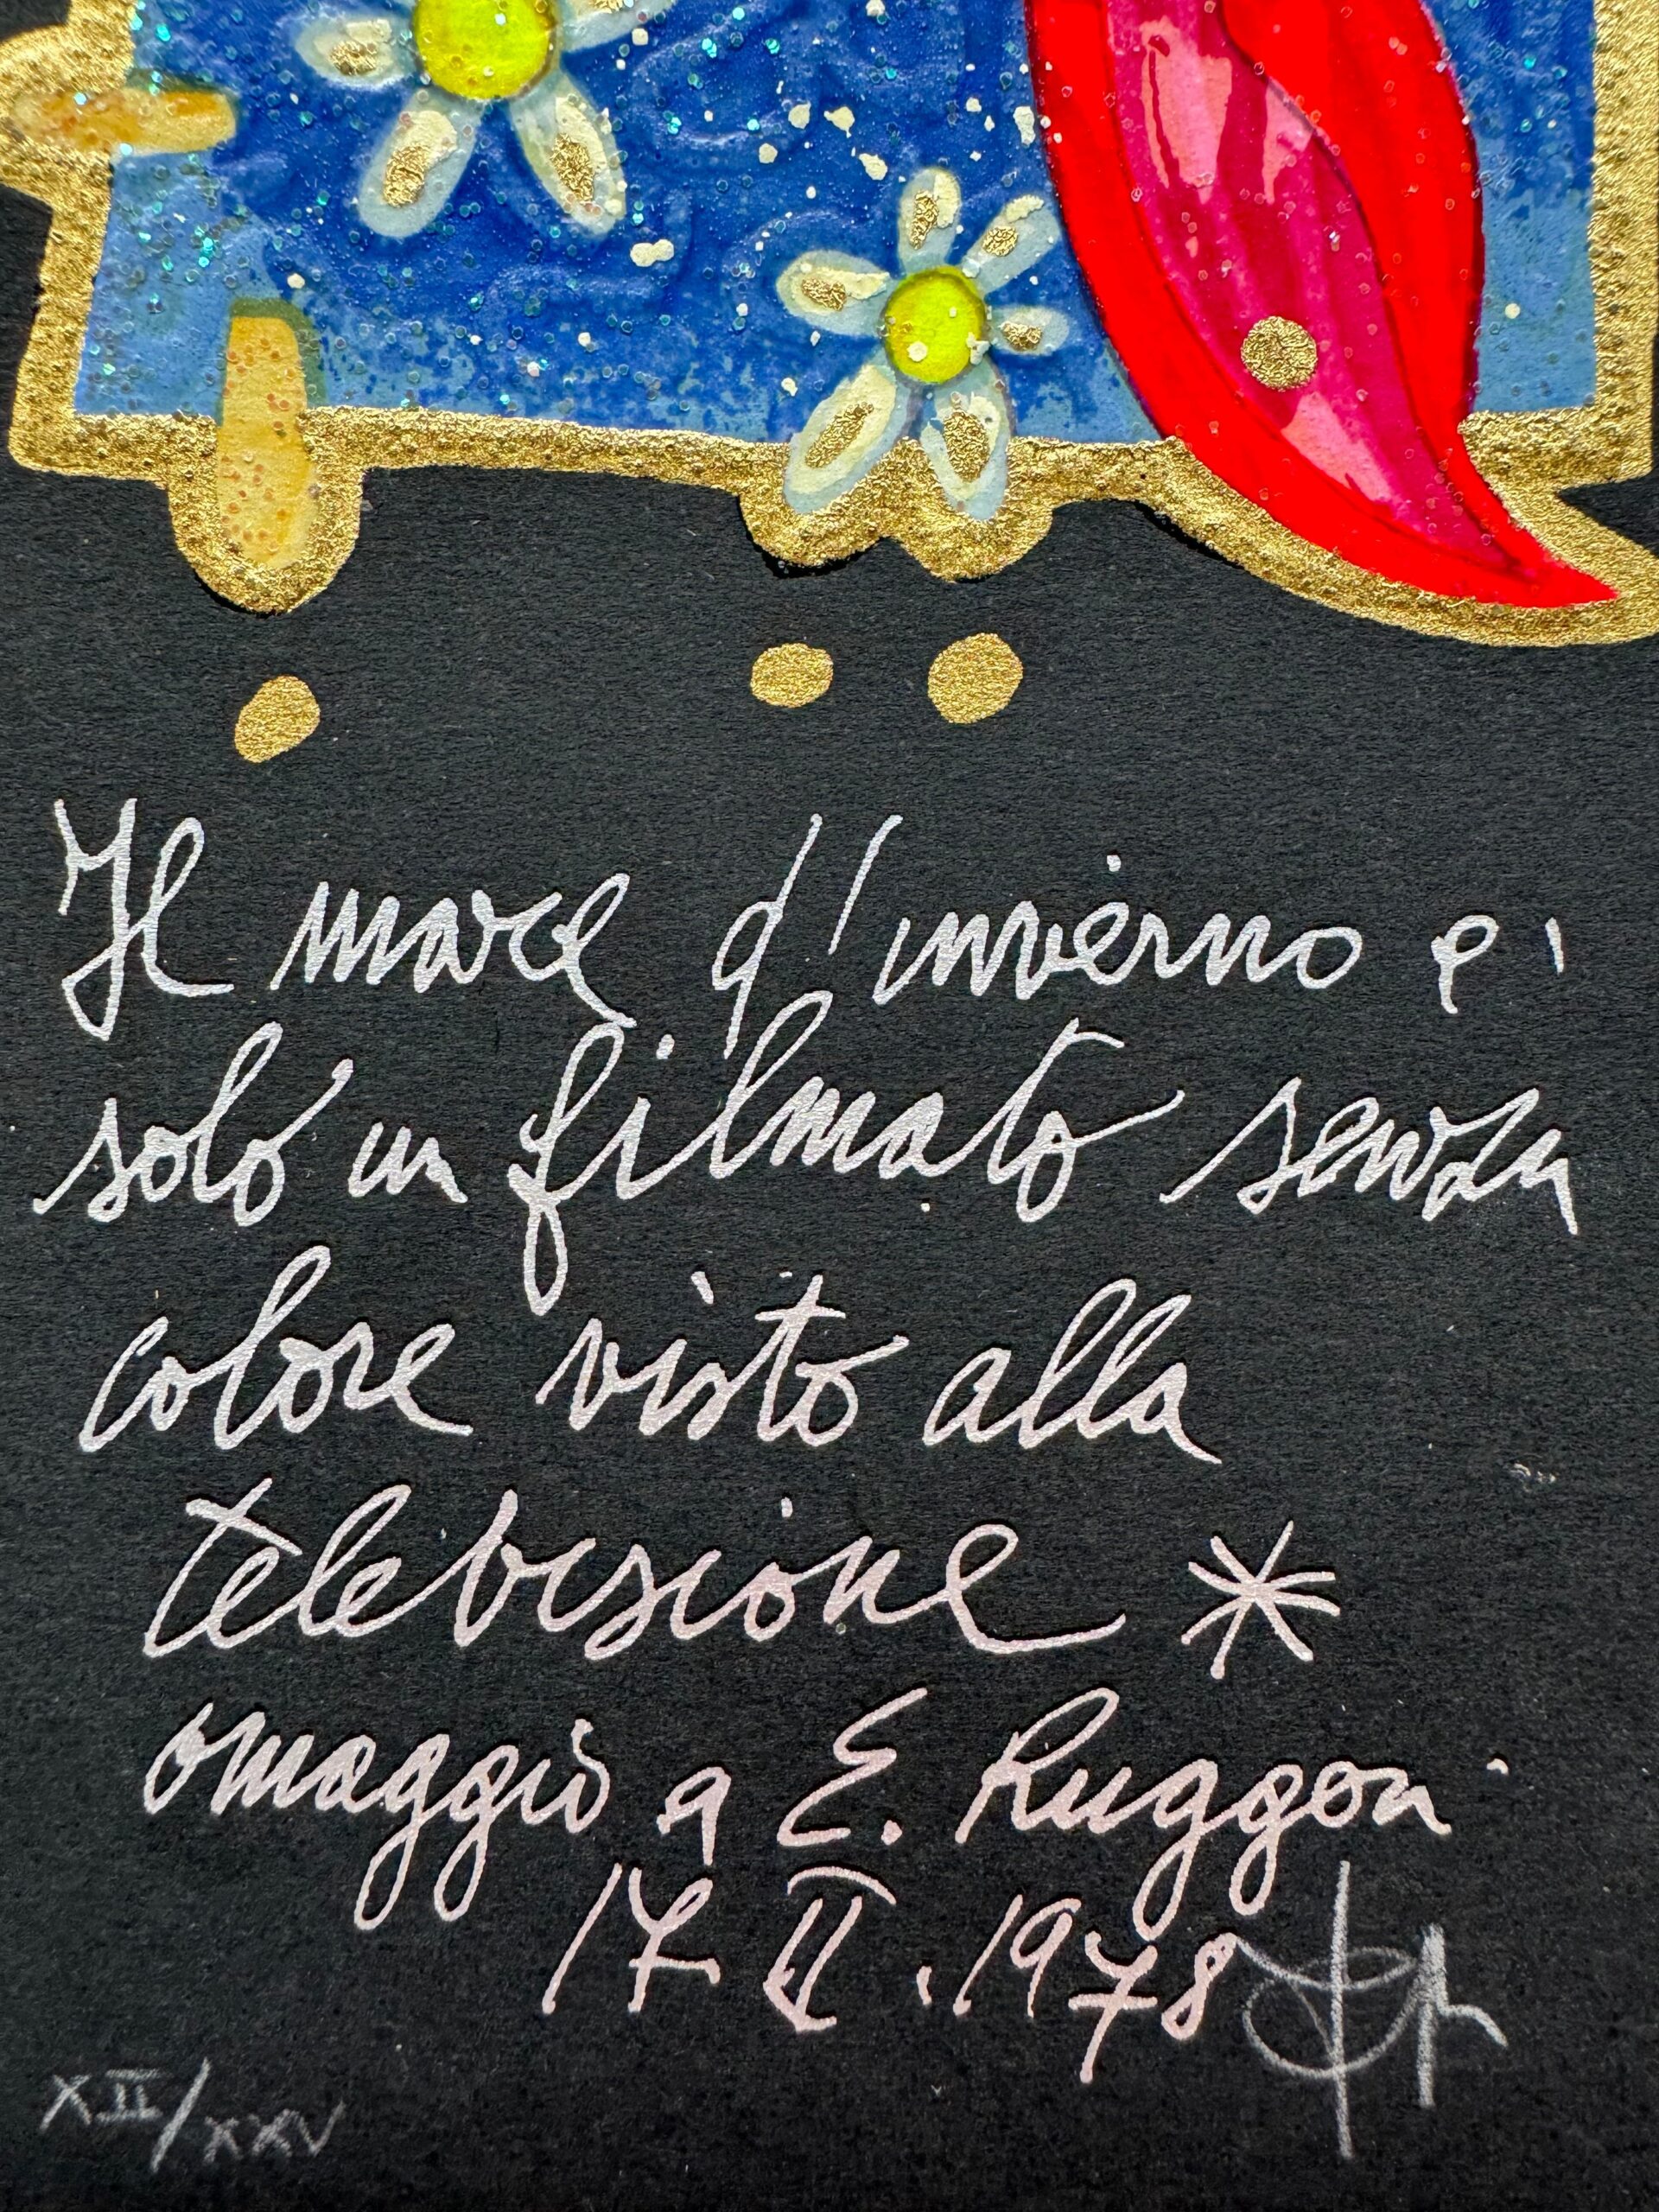 Il mare d'inverno e'
solo un filmato senza
colore visto alla
televisione *
omaggio a E. Ruggeri
17 II . 1978
XII/XXV